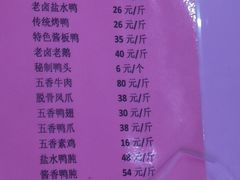 老卤盐水鸭 26 元/斤
传统烤鸭 26 元/斤
特色酱板鸭 35 元/斤
老卤老鹅 40 元/斤
秘制鸭头 6 元/个
五香牛肉 80 元/斤
脱骨凤爪 38 元/斤
五香鸭翅 30 元/斤
五香鸭爪 38 元/斤
五香素鸡 16 元/斤
盐水鸭肫 48 元/斤
酱香鸭肫 54 元/斤